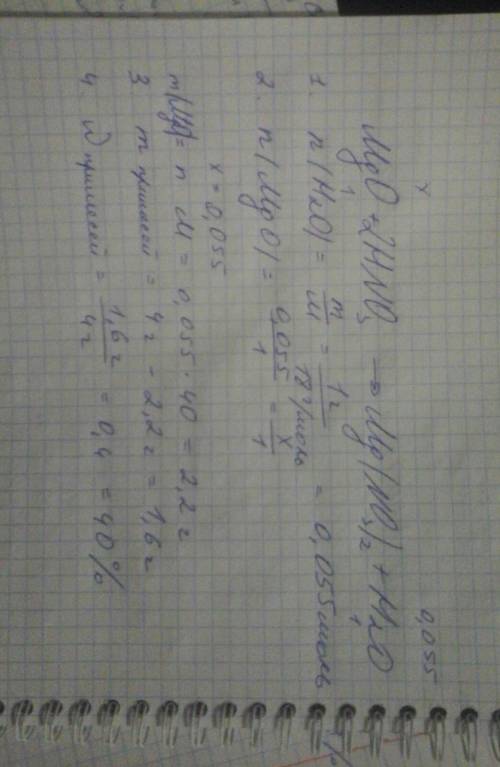 x 0,055
MgO + 2HNO₃ → Mg(NO₃)₂ + H₂O
1 1
1. n(H₂O) = m/M = 1г/18г/моль = 0,055моль
2. n(MgO) = 0,055/1 = x/1
x = 0,055
m(MgO) = n M = 0,055 · 40 = 2,2 г
3 m примесей = 4г - 2,2г = 1,6г
4. ω примесей = 1,6г/4г = 0,4 = 40%